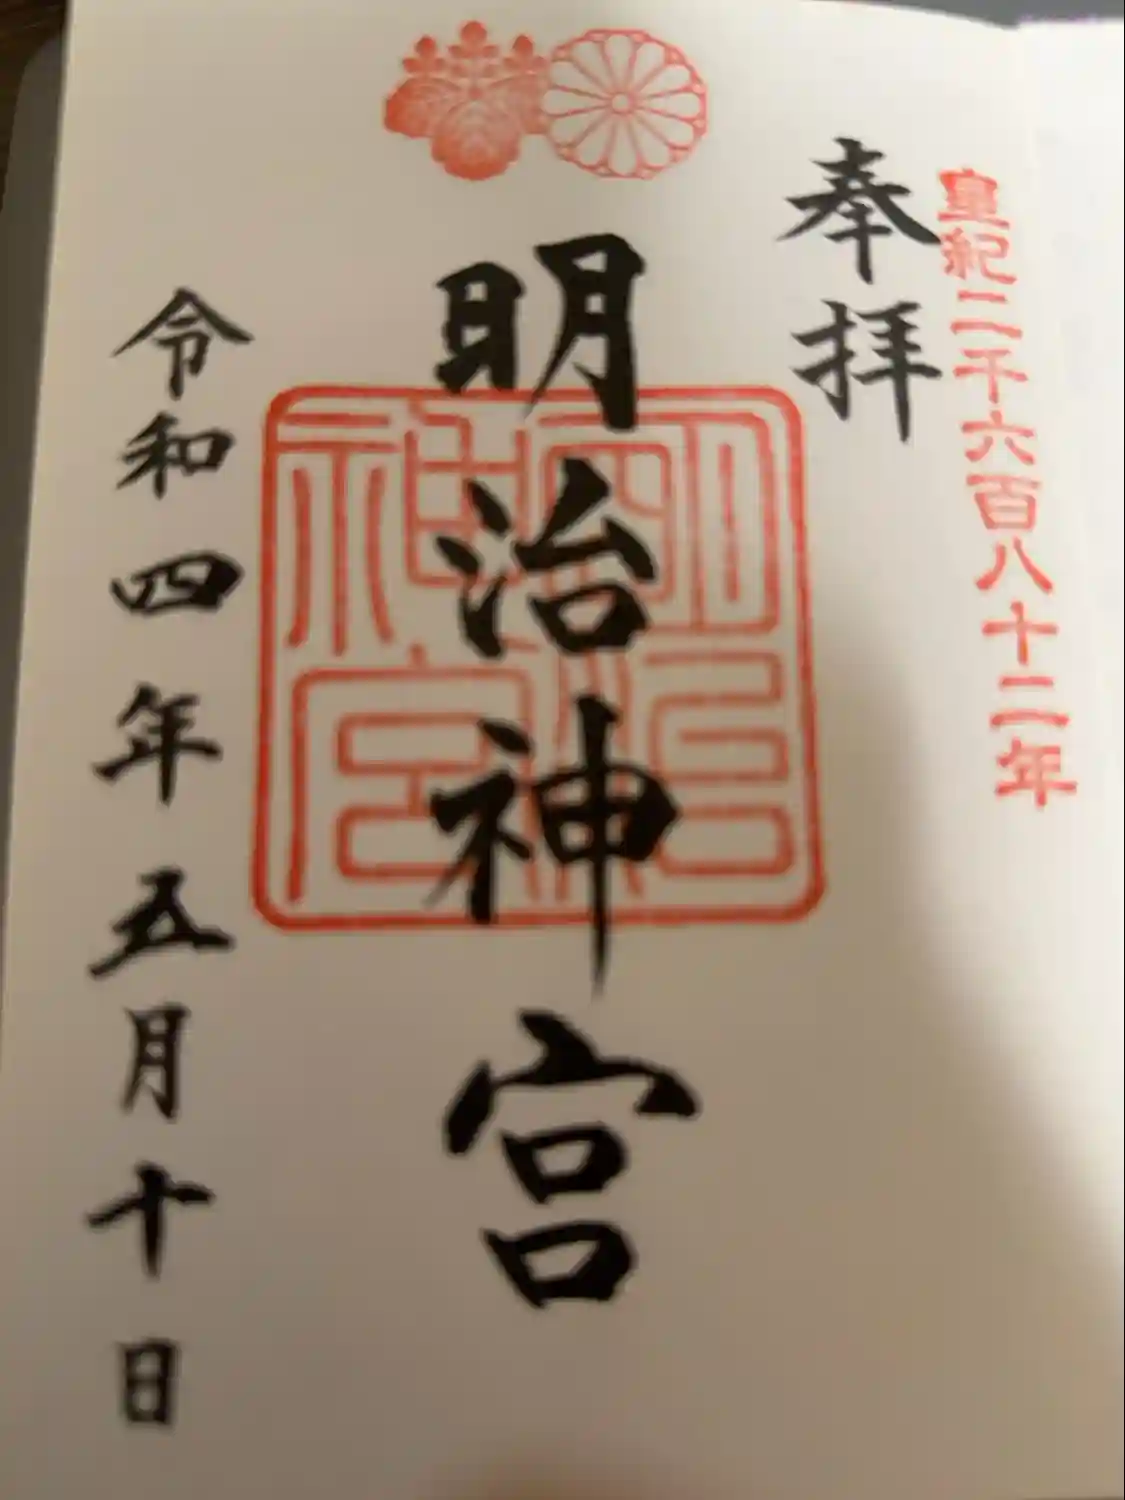 皇紀二千六百八十二年
奉拝
明治神宮
明治神宮
令和四年五月十日